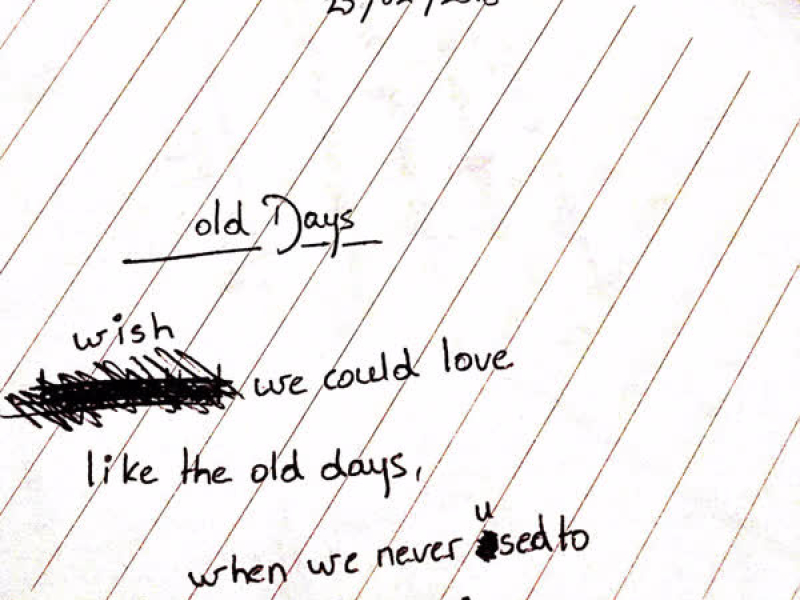 old Days
wish
we could love
like the old days,
when we never used to